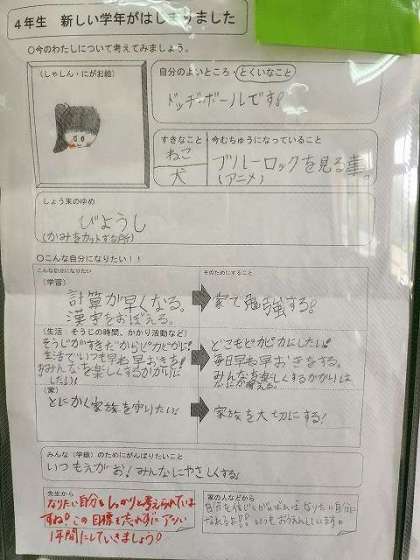 4年生 新しい学年がはじまりました
○今のわたしについて考えてみましょう。
(しゃしん・にがお絵)
自分のよいところ・とくいなこと
ドッヂボールです!
すきなこと
ねこ
犬
今むちゅうになっていること
ブルーロックを見る事。
(アニメ)
しょう来のゆめ
びようし
(かみをカットする所)
○こんな自分になりたい!!
こんな自分になりたい
そのためにすること
(学習)
計算が早くなる。
漢字をおぼえる。
家で勉強する!
(生活:そうじの時間、かかり活動など)
そうじがすきだからピカピカに!
生活でいつも早ね早おきを!
みんなを楽しくするかかりに
したい!
どこもピカピカにしたい!
毎日早ね早おきをする。
みんなを楽しくするかかりは
なにか考える。
(家)
とにかく家族を守りたい!
家族を大切にする!
みんな(学級)のためにがんばりたいこと
いつもえがお!みんなにやさしくする!
先生から
なりたい自分をしっかりと考えられていま
すね!この目標を忘れずにアツい
1年間にしていきましょう!
家の人などから
自分を信じてがんばれば なりたい自分に
なれるよ!! いつもおうえんしています。